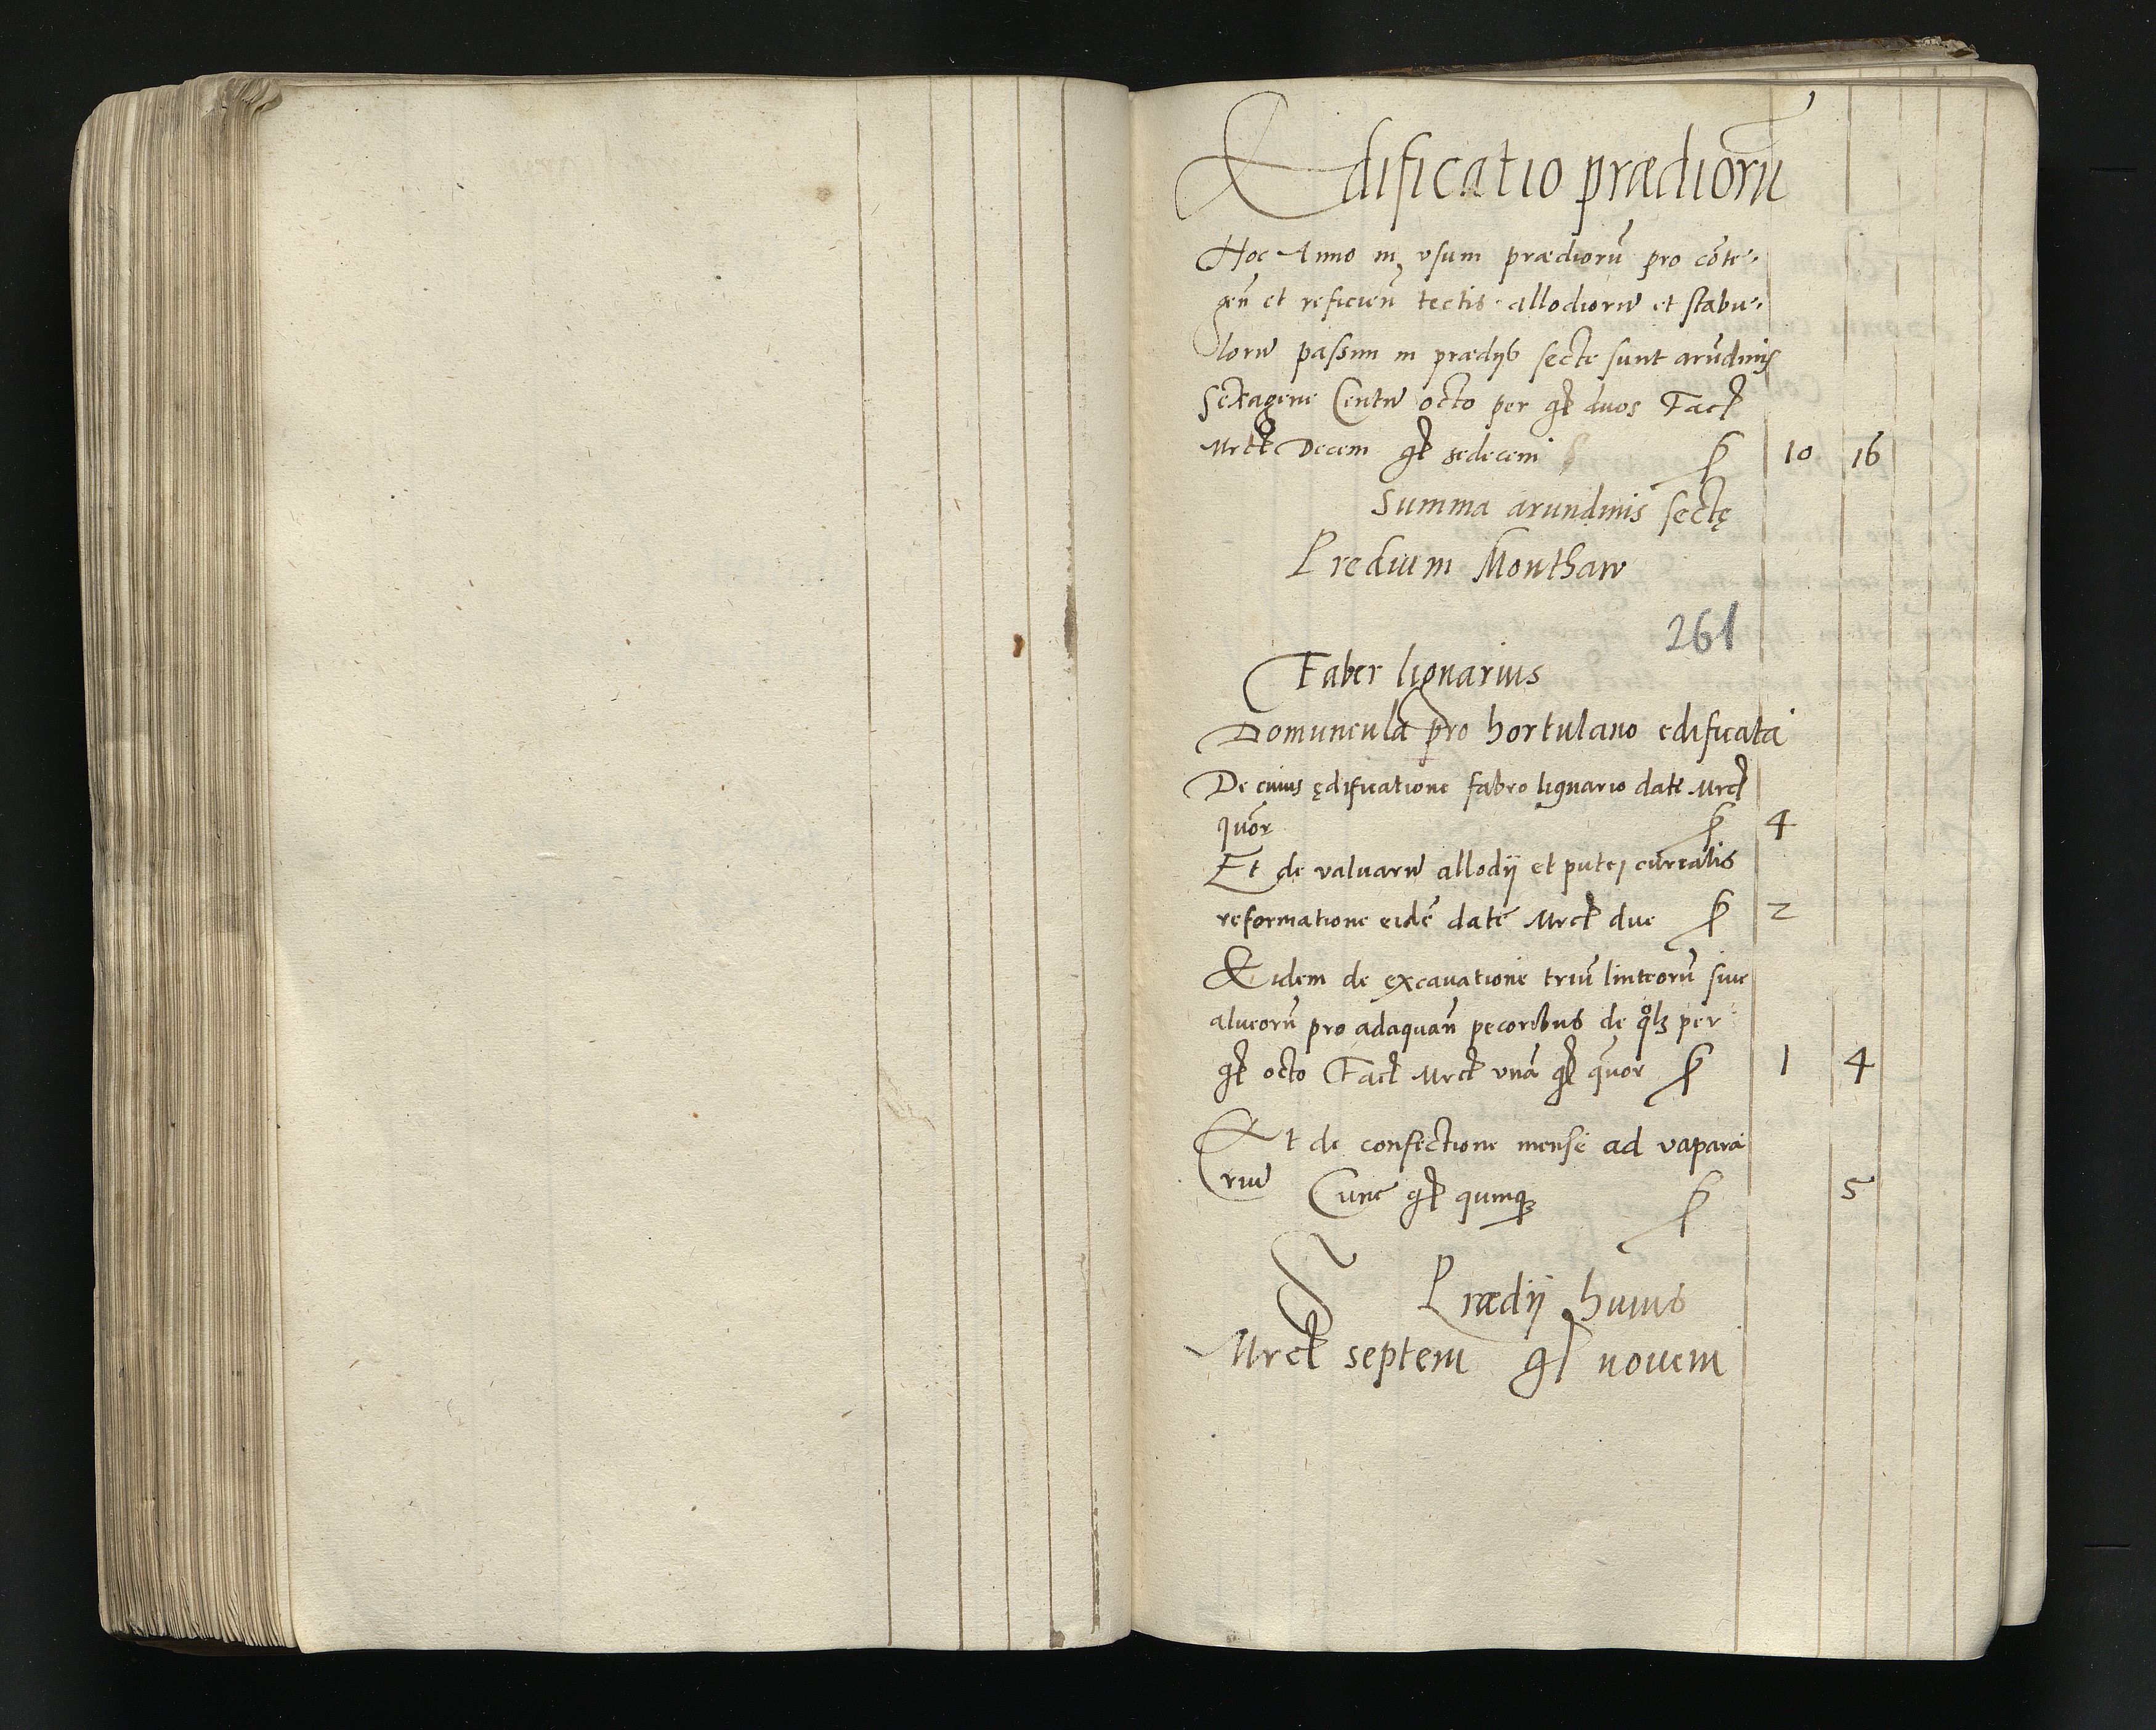 Edificatio prædiorū
Hoc Anno in usum prædiorū pro cōte⸗
gen̄ et reficien̄ tectis allodiorū et stabu⸗
lorū passim in prædijs secte sunt arūdinis
sexagene Centū octo per gł duos Facł
Mrcł Decem gł sedecem ꝑ 10 16
Summa arundinis sectę
Predium Monthaw
261
Faber lignarius
Domuncula pro hortulano edificata
De cuius ędificatione fabro lignario date Mrcł
quōr ꝑ 4
Et de valuarū allodij et putej curialis
reformatione eidē date Mrcł due ꝑ 2
Eidem de excauatione triū linteorū siue
alueorū pro adaquan̄ pecoribus de qᵒlꝫ per
gł octo Facł Mrcł vnā gł quōr ꝑ 1 4
Et de confectione mense ad vapora
riū gł quinqꝫ ꝑ 5
S Prædij huius
Mrcł septem gł nouem